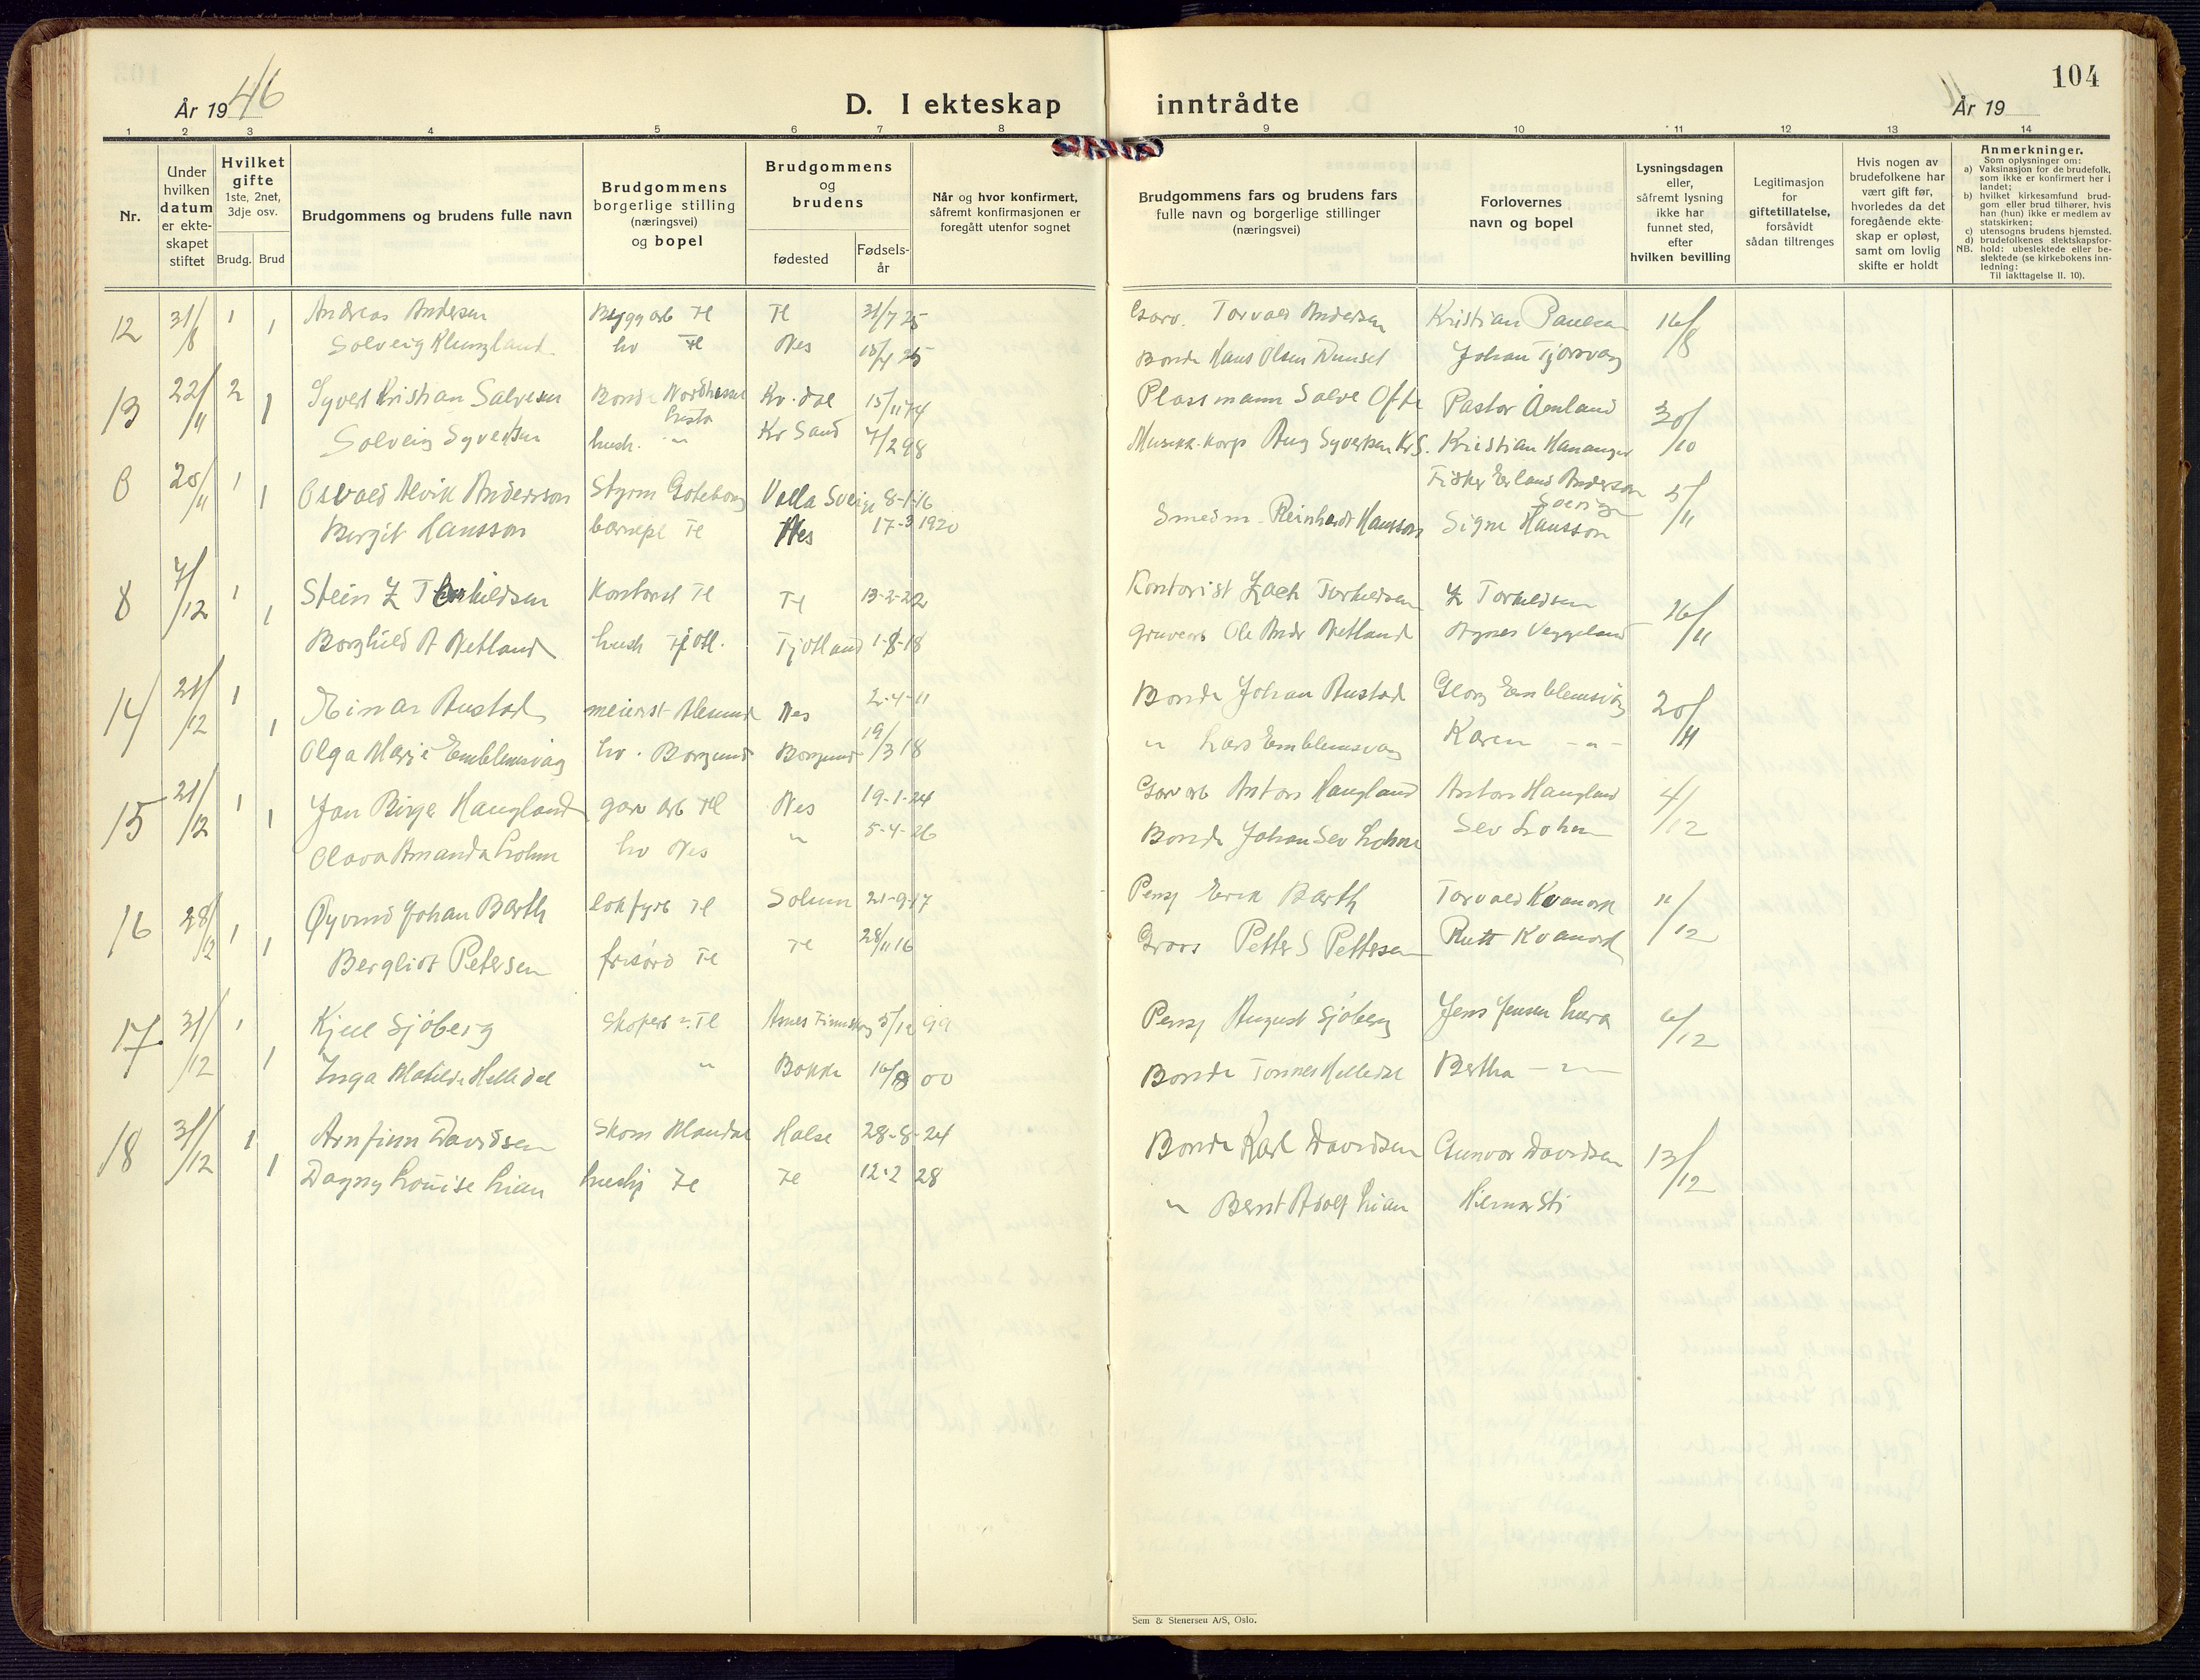 104
År 1946
D. I ekteskap inntrådte
År 19
1 2 3 4 5 6 7 8 9 10 11 12 13 14
Nr.
Under hvilken datum er ekteskapet stiftet
Hvilket gifte 1ste, 2net, 3dje osv.
Brudg. Brud
Brudgommens og brudens fulle navn
Brudgommens borgerlige stilling (næringsvei) og bopel
Brudgommens og brudens
fødested
Fødsels-år
Når og hvor konfirmert, såfremt konfirmasjonen er foregått utenfor sognet
Brudgommens fars og brudens fars fulle navn og borgerlige stillinger (næringsvei)
Forlovernes navn og bopel
Lysningsdagen eller, såfremt lysning ikke har funnet sted, efter hvilken bevilling
Legitimasjon for giftetillatelse, forsåvidt sådan tiltrenges
Hvis nogen av brudefolkene har vært gift før, hvorledes da det foregående ekteskap er opløst, samt om lovlig skifte er holdt
Anmerkninger.
Som oplysninger om:
a) Vaksinasjon for de brudefolk, som ikke er konfirmert her i landet;
b) hvilket kirkesamfund brudgom eller brud tilhører, hvis han (hun) ikke er medlem av statskirken;
c) utensogns brudens hjemsted.
d) brudefolkenes slektskapsforhold: ubeslektede eller beslektede (se kirkebokens innledning:
NB. Til iakttagelse II. 10).
12 31/8 1 Andreas Andersen Bygg arb Fl Fl 31/7 25 Garv. Torvald Andersen Kristian Paulsen 16/8
1 Solveig Klungland hv Fl Nes Bonde Hans Olsen Johan Tjorsvag
13 22/11 2 Syvert Kristian Salvesen Bonde Nordhassel Lista Kv.dal 15/11 74 Plassmann Salve Ofte Pastor Åmland 30/10
1 Solveig Syvertsen hush. " Kr Sand 7/2 98 Musikk. korp Aug Syvertsen Kr S. Kristian Hananger
6 25/11 1 Osvald Alvik Andersson Styrm Gøteborg Valla Sverige 8-1-16 Fisker Erland Anderson Sverige 5/11
1 Bergit Hansson barnepl Fl Nes 17-3 1920 Smedm Reinhardt Hansson Signe Hansson
8 7/12 1 Stein Z Torkildsen Kontorist Fl Fl 13-2-22 Kontorist Zach Torkildsen Z Torkildsen 26/11
1 Borghild A Netland hush Tjotl. Tjotland 1-8-18 Gruvearb Ole Andr Netland Agnes Veggeland
14 21/12 1 Einar Austad meierist Alesund Nes 2-4-11 Bonde Johan Austad Georg Emblemsvåg 20/11
1 Olga Marie Emblemsvåg hv. Borgund Borgund 19/3 18 " Lars Emblemsvåg Karen - " -
15 21/12 1 Jan Birger Haugland garv arb Fl Nes 19-1-24 Garv arb Anton Haugland Anton Haugland 4/12
1 Olava Amanda Lohne hv Nes " 5-4-26 Bonde Johan Sev Lohne Sev Lohne
16 28/12 1 Øyvind Johan Barth lok fyrb Fl Solum 21-9-17 Pensj Erik Barth Torvald Kvanvik 11/12
1 Bergliot Petersen frisørd Fl Fl 28/11 16 Petter S Pettersen Rutt
17. 31/12 1 Kjell Sjøberg Skofarb Fl 5/12 99 Pensj August Sjøberg Jens Jensen Lura 6/12
1 Inga Matilde Helledal " Bakke 16/8 00 Bonde Tønnes Helledal Bertha - " -
18 31/12 1 Arnfinn Davidsen Skom Mandal Halse 28-8-24 Bonde Karl Davidsen Gunvor Davidsen 13/12
1 Dagny Louise Lian hushj Fl Fl 12-2 28 " Bernt Adolf Lian Hilmar Sti
Sem & Stenersen A/S, Oslo.